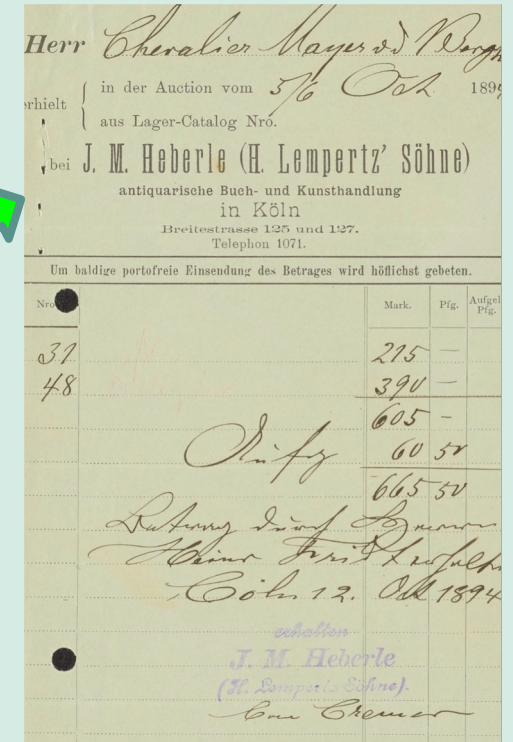 Herr Chevalier Mayer v d Bergh
erhielt
in der Auction vom 5/6 Oct 1894
aus Lager-Catalog Nro.
bei J. M. Heberle (H. Lempertz' Söhne)
antiquarische Buch- und Kunsthandlung
in Köln
Breitestrasse 125 und 127.
Telephon 1071.
Um baldige portofreie Einsendung des Betrages wird höflichst gebeten.
Nro. Mark. Pfg. Aufgel Pfg.
31 215 —
48 390 —
605 -
Aufg 60 50
665 50
Betrag durch Herrn
Heinr
Cöln 12. Oct 1894
erhalten
J. M. Heberle
(H. Lempertz Söhne).
Cremer